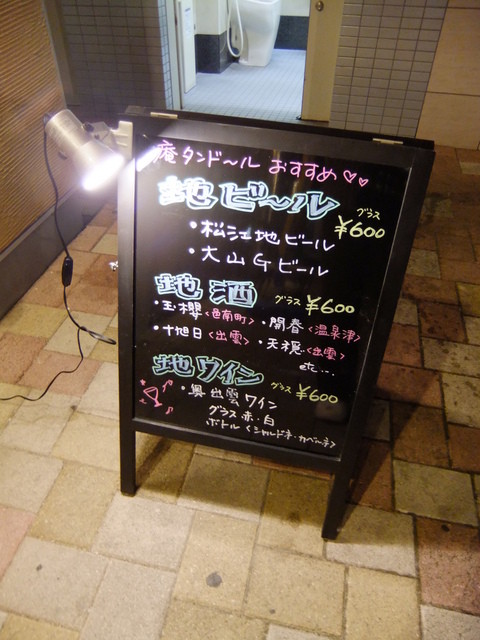 庵タンド〜ル おすすめ♡♡
地ビ〜ル
グラス ¥600
・松江地ビール
・大山Gビール
地酒 グラス ¥600
・玉櫻<邑南町> ・開春<温泉津>
・十旭日<出雲> ・天穏<出雲>
etc....
地ワイン グラス ¥600
・奥出雲ワイン
グラス赤・白
ボトル<シャルドネ・カベーネ>